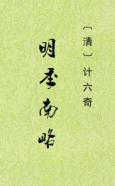 〔清〕计六奇
明季南略